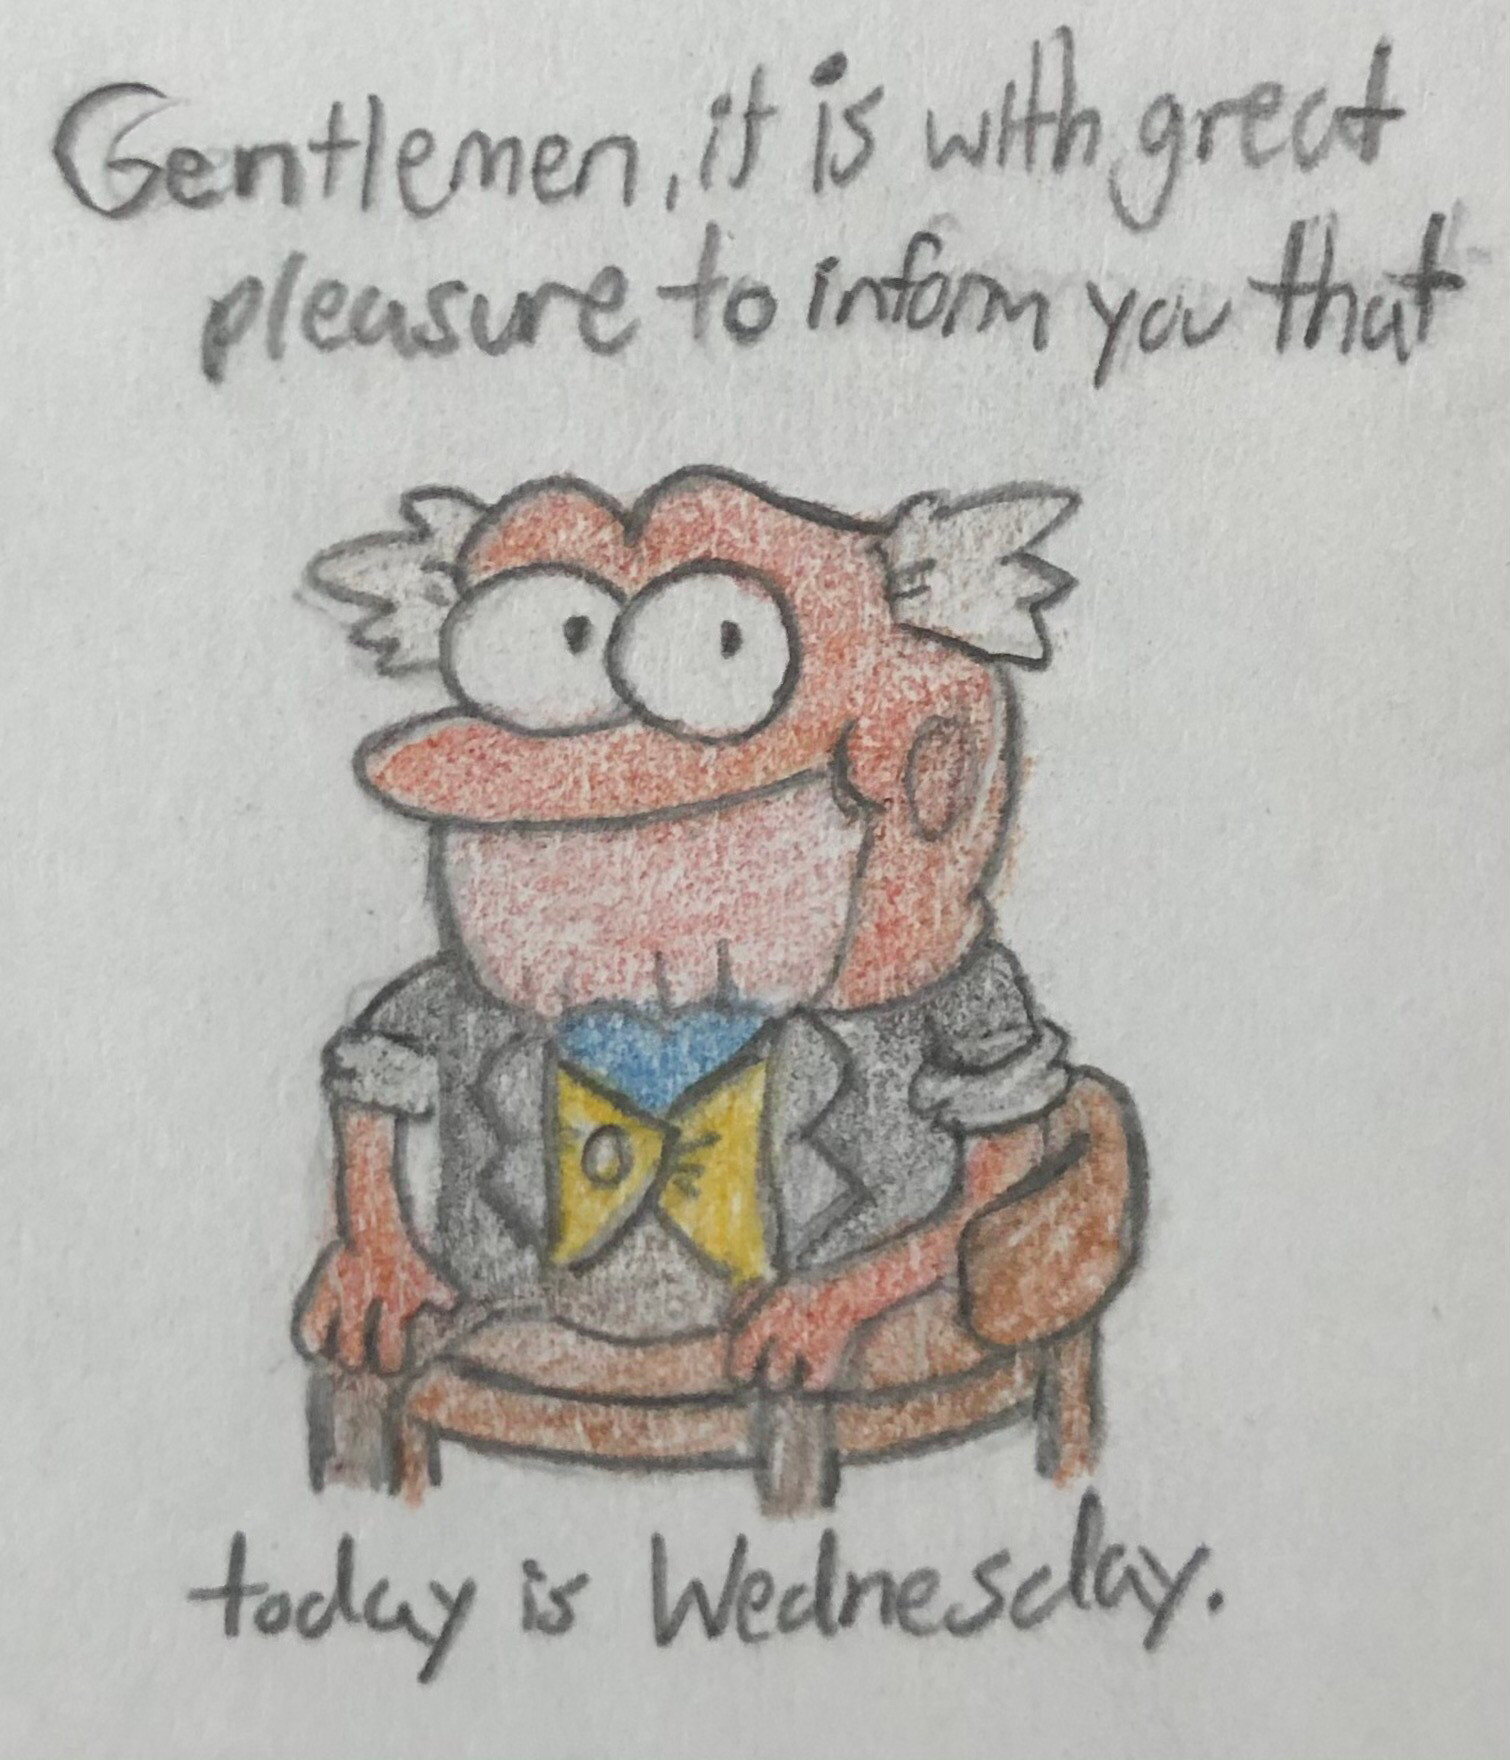 Gentlemen, it is with great
pleasure to inform you that
today is Wednesday.